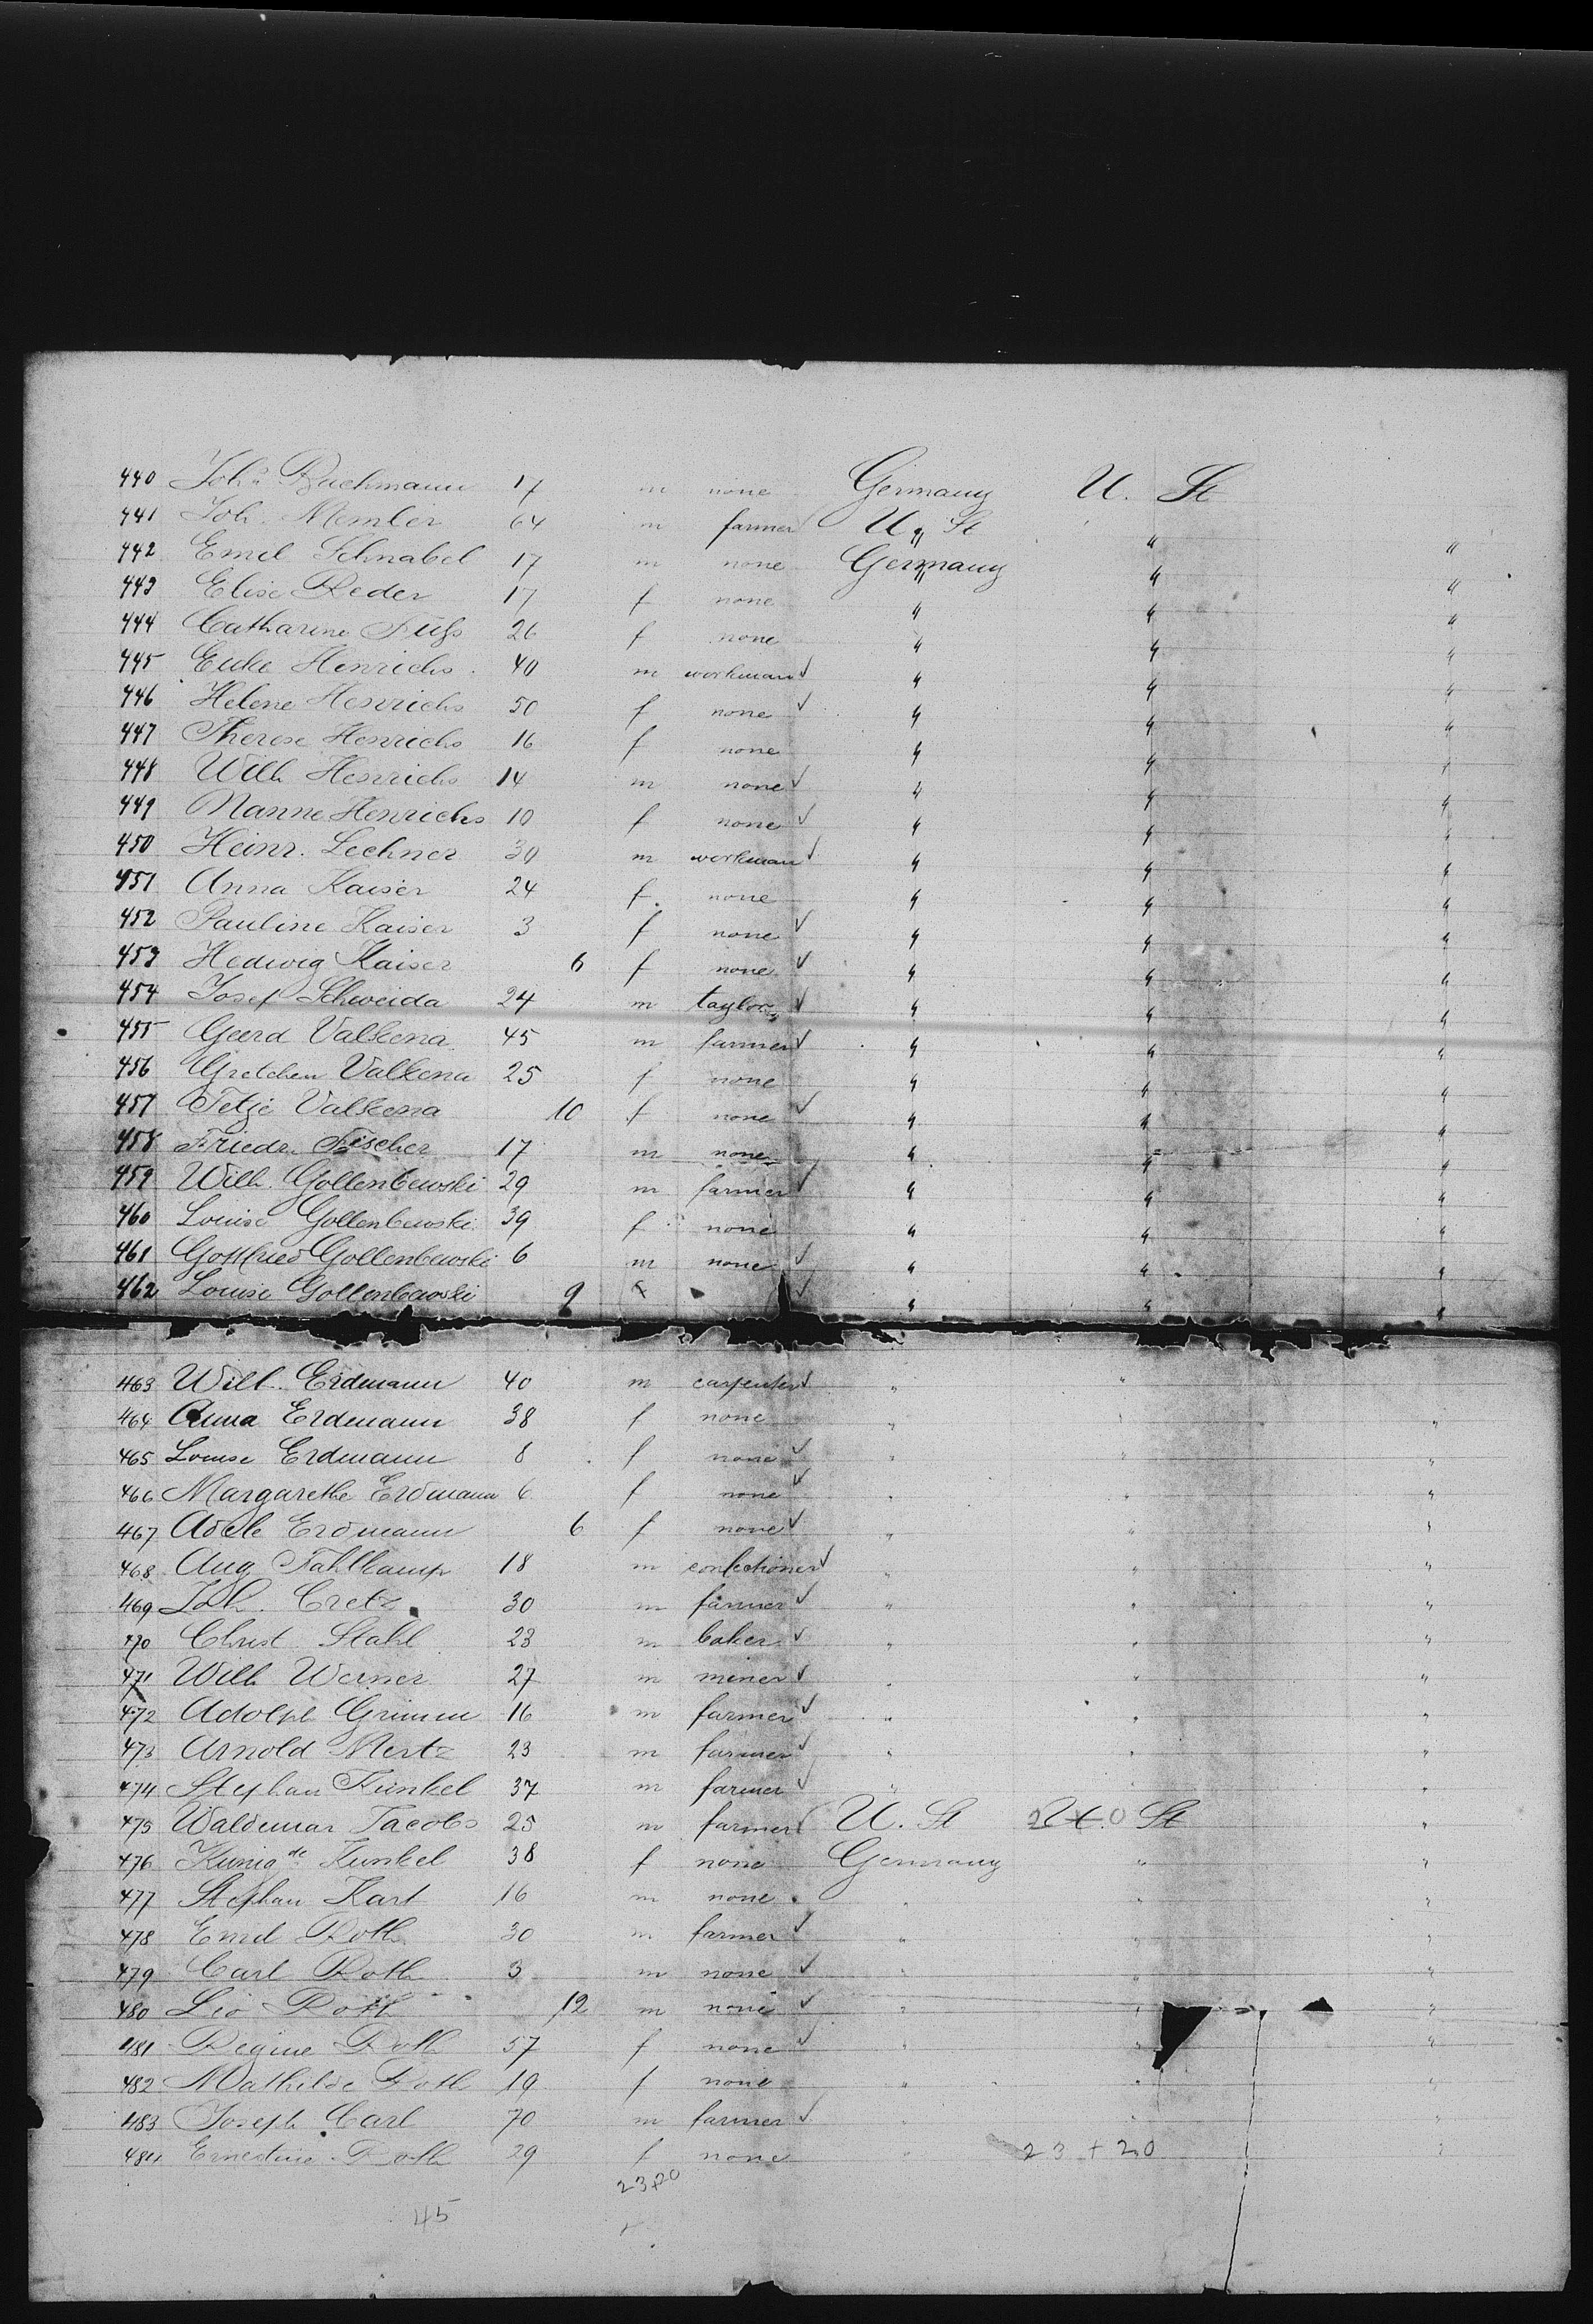 440 Joh. Bachmann 17 m none Germany U. St
441 Joh. Memler 64 m farmer U. St " "
442 Emil Schnabel 17 m none Germany " "
443 Elise Reder 17 f none " " "
444 Catharine Fuß 26 f none " " "
445 Henrichs 40 m workman " " "
446 Helene Henrichs 50 f none " " "
447 Therese Henrichs 16 f none " " "
448 Wilh Henrichs 14 m none " " "
449 Nanne Henrichs 10 f none " " "
450 Heinr. Lechner 30 m workman " " "
451 Anna Kaiser 24 f. none " " "
452 Pauline Kaiser 3 f none " " "
453 Hedwig Kaiser 6 f none " " "
454 Josef Schweida 24 m taylor " " "
455 Geerd Valkena 45 m farmer " " "
456 Gretchen Valkena 25 f none " " "
457 Tetje Valkena 10 f none " " "
458 Friedr. Fischer 17 m none " " "
459 Wilh. Gollenbewski 29 m farmer " " "
460 Louise Gollenbewski 39 f none " " "
461 Gottfried Gollenbewski 6 m none " " "
462 Louise Gollenbewski 9 f " " "
463 Wilh. Erdmann 40 m carpenter " "
464 Anna Erdmann 38 f none " " "
465 Louise Erdmann 8 f none " " "
466 Margarethe Erdmann 6 f none " " "
467 Adele Erdmann 6 f none " " "
468 Aug Fahlkamp 18 m confectioner " " "
469 Joh. Cretz 30 m farmer " " "
470 Christ Stahl 23 m baker " " "
471 Wilh Werner 27 m miner " " "
472 Adolph Grimm 16 m farmer " " "
473 Arnold Mertz 23 m farmer " " "
474 Stephan Kunkel 37 m farmer " " "
475 Waldemar Jacobs 25 m farmer U. St St "
476 Kunigde Kunkel 38 f none Germany " "
477 Stephan Karl 16 m none " " "
478 Emil Roth 30 m farmer " " "
479 Carl Roth 3 m none " " "
480 Leo Roth 12 m none " " "
481 Regine Roth 57 f none " " "
482 Mathilde Roth 19 f none " " "
483 Joseph Carl 70 m farmer " " "
484 Ernestine Roth 29 f none " 23 + 20 "
45